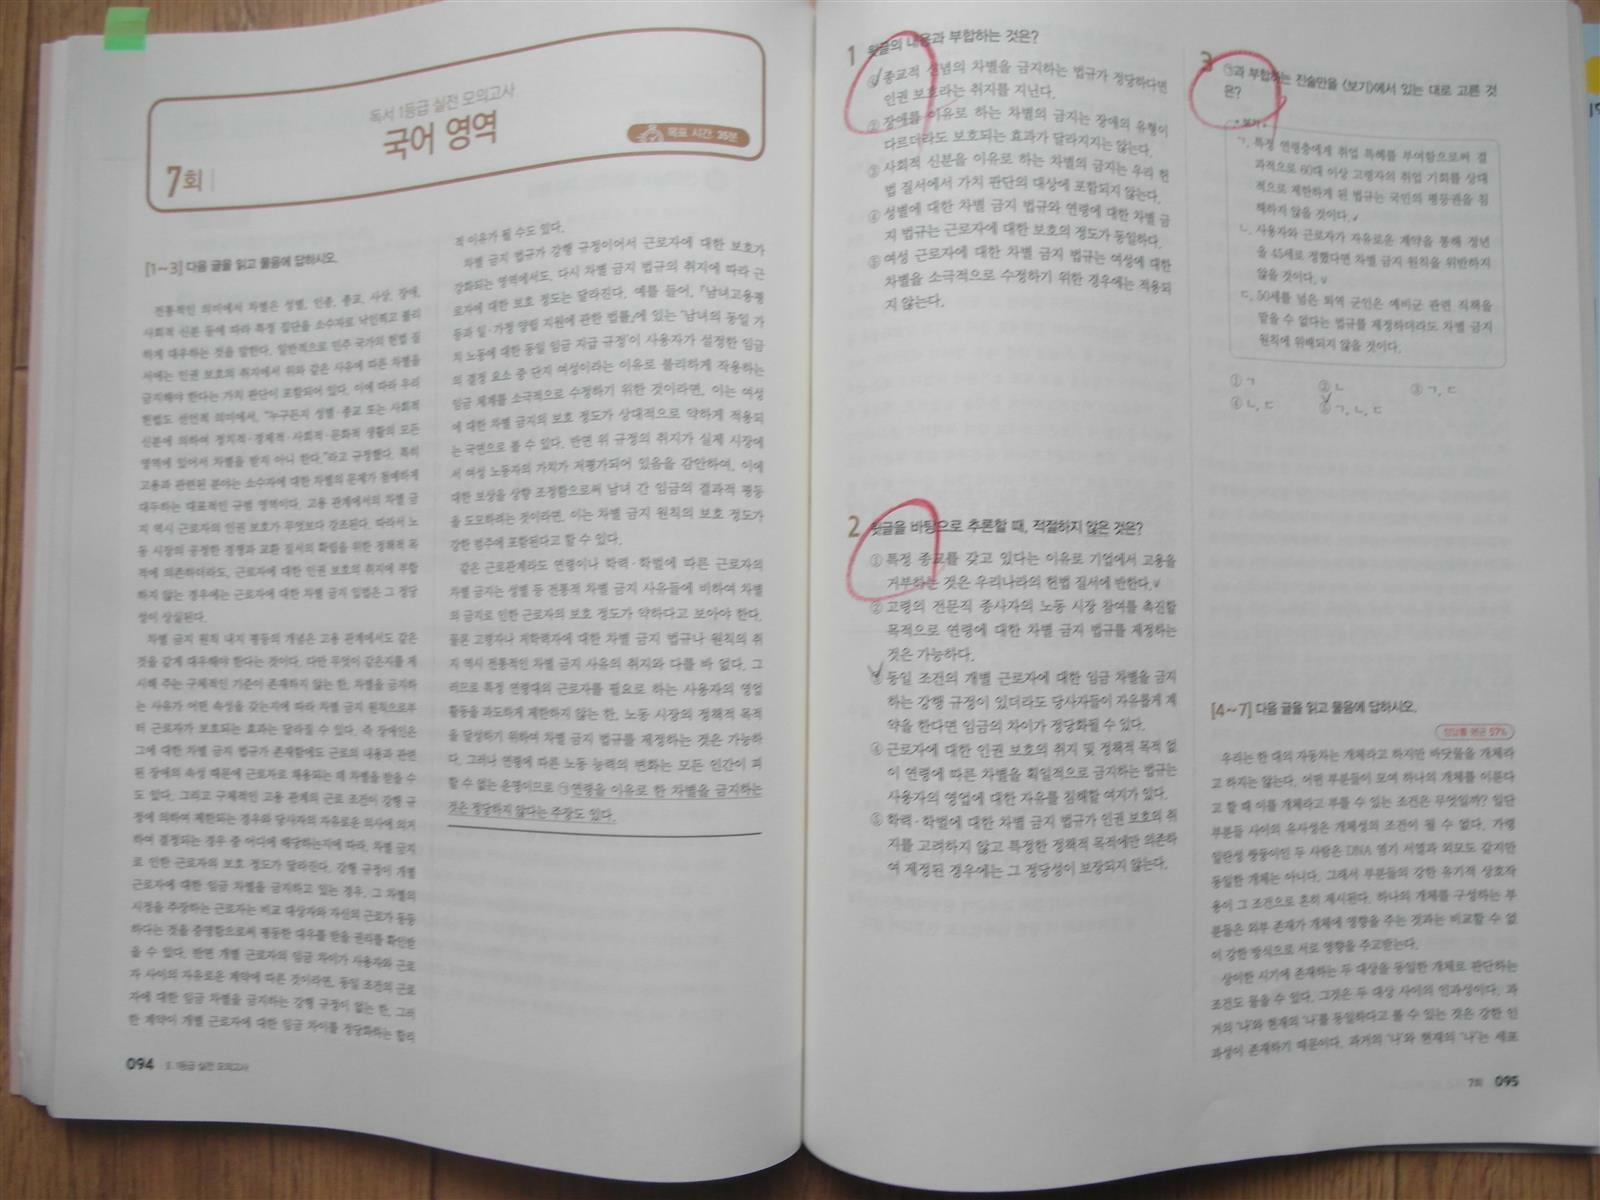 독서 1등급 실전 모의고사
국어 영역
목표 시간 35분
7회
[1~3] 다음 글을 읽고 물음에 답하시오.
전통적인 의미에서 차별은 성별, 인종, 종교, 사상, 장애,
사회적 신분 등에 따라 특정 집단을 소수자로 낙인찍고 불리
하게 대우하는 것을 말한다. 일반적으로 민주 국가의 헌법 질
서에는 인권 보호의 취지에서 위와 같은 사유에 따른 차별을
금지해야 한다는 가치 판단이 포함되어 있다. 이에 따라 우리
헌법도 선언적 의미에서, “누구든지 성별·종교 또는 사회적
신분에 의하여 정치적·경제적·사회적·문화적 생활의 모든
영역에 있어서 차별을 받지 아니 한다.”라고 규정했다. 특히
고용과 관련된 분야는 소수자에 대한 차별의 문제가 첨예하게
대두하는 대표적인 규범 영역이다. 고용 관계에서의 차별 금
지 역시 근로자의 인권 보호가 무엇보다 강조된다. 따라서 노
동 시장의 공정한 경쟁과 교환 질서의 확립을 위한 정책적 목
적에 의존하더라도, 근로자에 대한 인권 보호의 취지에 부합
하지 않는 경우에는 근로자에 대한 차별 금지 입법은 그 정당
성이 상실된다.
차별 금지 원칙 내지 평등의 개념은 고용 관계에서도 같은
것을 같게 대우해야 한다는 것이다. 다만 무엇이 같은지를 제
시해 주는 구체적인 기준이 존재하지 않는 한, 차별을 금지하
는 사유가 어떤 속성을 갖는지에 따라 차별 금지 원칙으로부
터 근로자가 보호되는 효과는 달라질 수 있다. 즉 장애인은
그에 대한 차별 금지 법규가 존재함에도 근로의 내용과 관련
된 장애의 속성 때문에 근로자로 채용되는 때 차별을 받을 수
도 있다. 그리고 구체적인 고용 관계의 근로 조건이 강행 규
정에 의하여 제한되는 경우와 당사자의 자유로운 의사에 의거
하여 결정되는 경우 중 어디에 해당하는지에 따라, 차별 금지
로 인한 근로자의 보호 정도가 달라진다. 강행 규정이 개별
근로자에 대한 임금 차별을 금지하고 있는 경우, 그 차별의
시정을 주장하는 근로자는 비교 대상자와 자신의 근로가 동등
하다는 것을 증명함으로써 평등한 대우를 받을 권리를 확인받
을 수 있다. 반면 개별 근로자의 임금 차이가 사용자와 근로
자 사이의 자유로운 계약에 따른 것이라면, 동일 조건의 근로
자에 대한 임금 차별을 금지하는 강행 규정이 없는 한, 그러
한 계약이 개별 근로자에 대한 임금 차이를 정당화하는 합리
적 이유가 될 수도 있다.
차별 금지 법규가 강행 규정이어서 근로자에 대한 보호가
강화되는 영역에서도, 다시 차별 금지 법규의 취지에 따라 근
로자에 대한 보호 정도는 달라진다. 예를 들어, 「남녀고용평
등과 일·가정 양립 지원에 관한 법률」에 있는 ‘남녀의 동일 가
치 노동에 대한 동일 임금 지급 규정’이 사용자가 설정한 임금
의 결정 요소 중 단지 여성이라는 이유로 불리하게 작용하는
임금 체계를 소극적으로 수정하기 위한 것이라면, 이는 여성
에 대한 차별 금지의 보호 정도가 상대적으로 약하게 적용되
는 국면으로 볼 수 있다. 반면 위 규정의 취지가 실제 시장에
서 여성 노동자의 가치가 저평가되어 있음을 감안하여, 이에
대한 보상을 상향 조정함으로써 남녀 간 임금의 결과적 평등
을 도모하려는 것이라면, 이는 차별 금지 원칙의 보호 정도가
강한 범주에 포함된다고 할 수 있다.
같은 근로관계라도 연령이나 학력·학벌에 따른 근로자의
차별 금지는 성별 등 전통적 차별 금지 사유들에 비하여 차별
의 금지로 인한 근로자의 보호 정도가 약하다고 보아야 한다.
물론 고령자나 저학력자에 대한 차별 금지 법규나 원칙의 취
지 역시 전통적인 차별 금지 사유의 취지와 다를 바 없다. 그
러므로 특정 연령대의 근로자를 필요로 하는 사용자의 영업
활동을 과도하게 제한하지 않는 한, 노동 시장의 정책적 목적
을 달성하기 위하여 차별 금지 법규를 제정하는 것은 가능하
다. 그러나 연령에 따른 노동 능력의 변화는 모든 인간이 피
할 수 없는 운명이므로 ㉠연령을 이유로 한 차별을 금지하는
것은 정당하지 않다는 주장도 있다.
094 Ⅱ. 1등급 실전 모의고사
1 윗글의 내용과 부합하는 것은?
① 종교적 신념의 차별을 금지하는 법규가 정당하다면
인권 보호라는 취지를 지닌다.
② 장애를 이유로 하는 차별의 금지는 장애의 유형이
다르더라도 보호되는 효과가 달라지지는 않는다.
③ 사회적 신분을 이유로 하는 차별의 금지는 우리 헌
법 질서에서 가치 판단의 대상에 포함되지 않는다.
④ 성별에 대한 차별 금지 법규와 연령에 대한 차별 금
지 법규는 근로자에 대한 보호의 정도가 동일하다.
⑤ 여성 근로자에 대한 차별 금지 법규는 여성에 대한
차별을 소극적으로 수정하기 위한 경우에는 적용되
지 않는다.
2 윗글을 바탕으로 추론할 때, 적절하지 않은 것은?
① 특정 종교를 갖고 있다는 이유로 기업에서 고용을
거부하는 것은 우리나라의 헌법 질서에 반한다.
② 고령의 전문직 종사자의 노동 시장 참여를 촉진할
목적으로 연령에 대한 차별 금지 법규를 제정하는
것은 가능하다.
③ 동일 조건의 개별 근로자에 대한 임금 차별을 금지
하는 강행 규정이 있더라도 당사자들이 자유롭게 계
약을 한다면 임금의 차이가 정당화될 수 있다.
④ 근로자에 대한 인권 보호의 취지 및 정책적 목적 없
이 연령에 따른 차별을 획일적으로 금지하는 법규는
사용자의 영업에 대한 자유를 침해할 여지가 있다.
⑤ 학력·학벌에 대한 차별 금지 법규가 인권 보호의 취
지를 고려하지 않고 특정한 정책적 목적에만 의존하
여 제정된 경우에는 그 정당성이 보장되지 않는다.
3 ㉠과 부합하는 진술만을 〈보기〉에서 있는 대로 고른 것
은?
보기
ㄱ. 특정 연령층에게 취업 특혜를 부여함으로써 결
과적으로 60대 이상 고령자의 취업 기회를 상대
적으로 제한하게 된 법규는 국민의 평등권을 침
해하지 않을 것이다.
ㄴ. 사용자와 근로자가 자유로운 계약을 통해 정년
을 45세로 정했다면 차별 금지 원칙을 위반하지
않을 것이다.
ㄷ. 50세를 넘은 퇴역 군인은 예비군 관련 직책을
맡을 수 없다는 법규를 제정하더라도 차별 금지
원칙에 위배되지 않을 것이다.
① ㄱ ② ㄴ ③ ㄱ, ㄷ
④ ㄴ, ㄷ ⑤ ㄱ, ㄴ, ㄷ
[4~7] 다음 글을 읽고 물음에 답하시오.
정답률 평균 57%
우리는 한 대의 자동차는 개체라고 하지만 바닷물을 개체라
고 하지는 않는다. 어떤 부분들이 모여 하나의 개체를 이룬다
고 할 때 이를 개체라고 부를 수 있는 조건은 무엇일까? 일단
부분들 사이의 유사성은 개체성의 조건이 될 수 없다. 가령
일란성 쌍둥이인 두 사람은 DNA 염기 서열과 외모도 같지만
동일한 개체는 아니다. 그래서 부분들의 강한 유기적 상호작
용이 그 조건으로 흔히 제시된다. 하나의 개체를 구성하는 부
분들은 외부 존재가 개체에 영향을 주는 것과는 비교할 수 없
이 강한 방식으로 서로 영향을 주고받는다.
상이한 시기에 존재하는 두 대상을 동일한 개체로 판단하는
조건도 물을 수 있다. 그것은 두 대상 사이의 인과성이다. 과
거의 ‘나’와 현재의 ‘나’를 동일하다고 볼 수 있는 것은 강한 인
과성이 존재하기 때문이다. 과거의 ‘나’와 현재의 ‘나’는 세포
7회 095